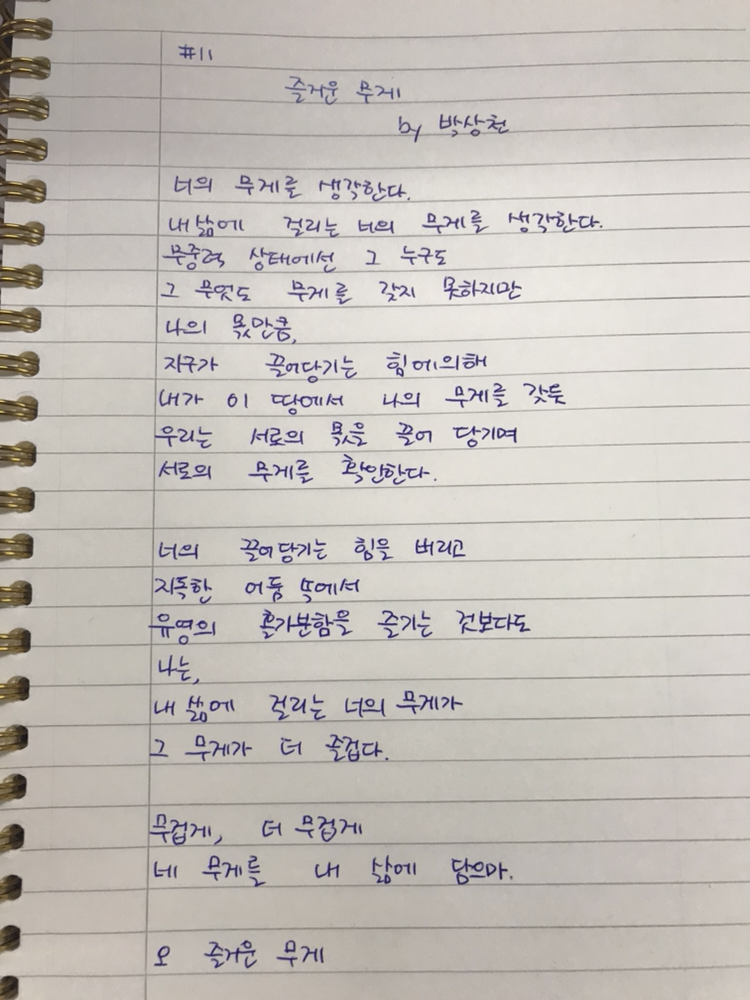 #11
즐거운 무게
by 박상천
너의 무게를 생각한다.
내 삶에 걸리는 너의 무게를 생각한다.
무중력 상태에선 그 누구도
그 무엇도 무게를 갖지 못하지만
나의 몫만큼,
지구가 끌어당기는 힘에 의해
내가 이 땅에서 나의 무게를 갖듯
우리는 서로의 몫을 끌어 당기며
서로의 무게를 확인한다.
너의 끌어당기는 힘을 버리고
지독한 어둠 속에서
유영의 홀가분함을 즐기는 것보다도
나는,
내 삶에 걸리는 너의 무게가
그 무게가 더 즐겁다.
무겁게, 더 무겁게
네 무게를 내 삶에 담으마.
오 즐거운 무게